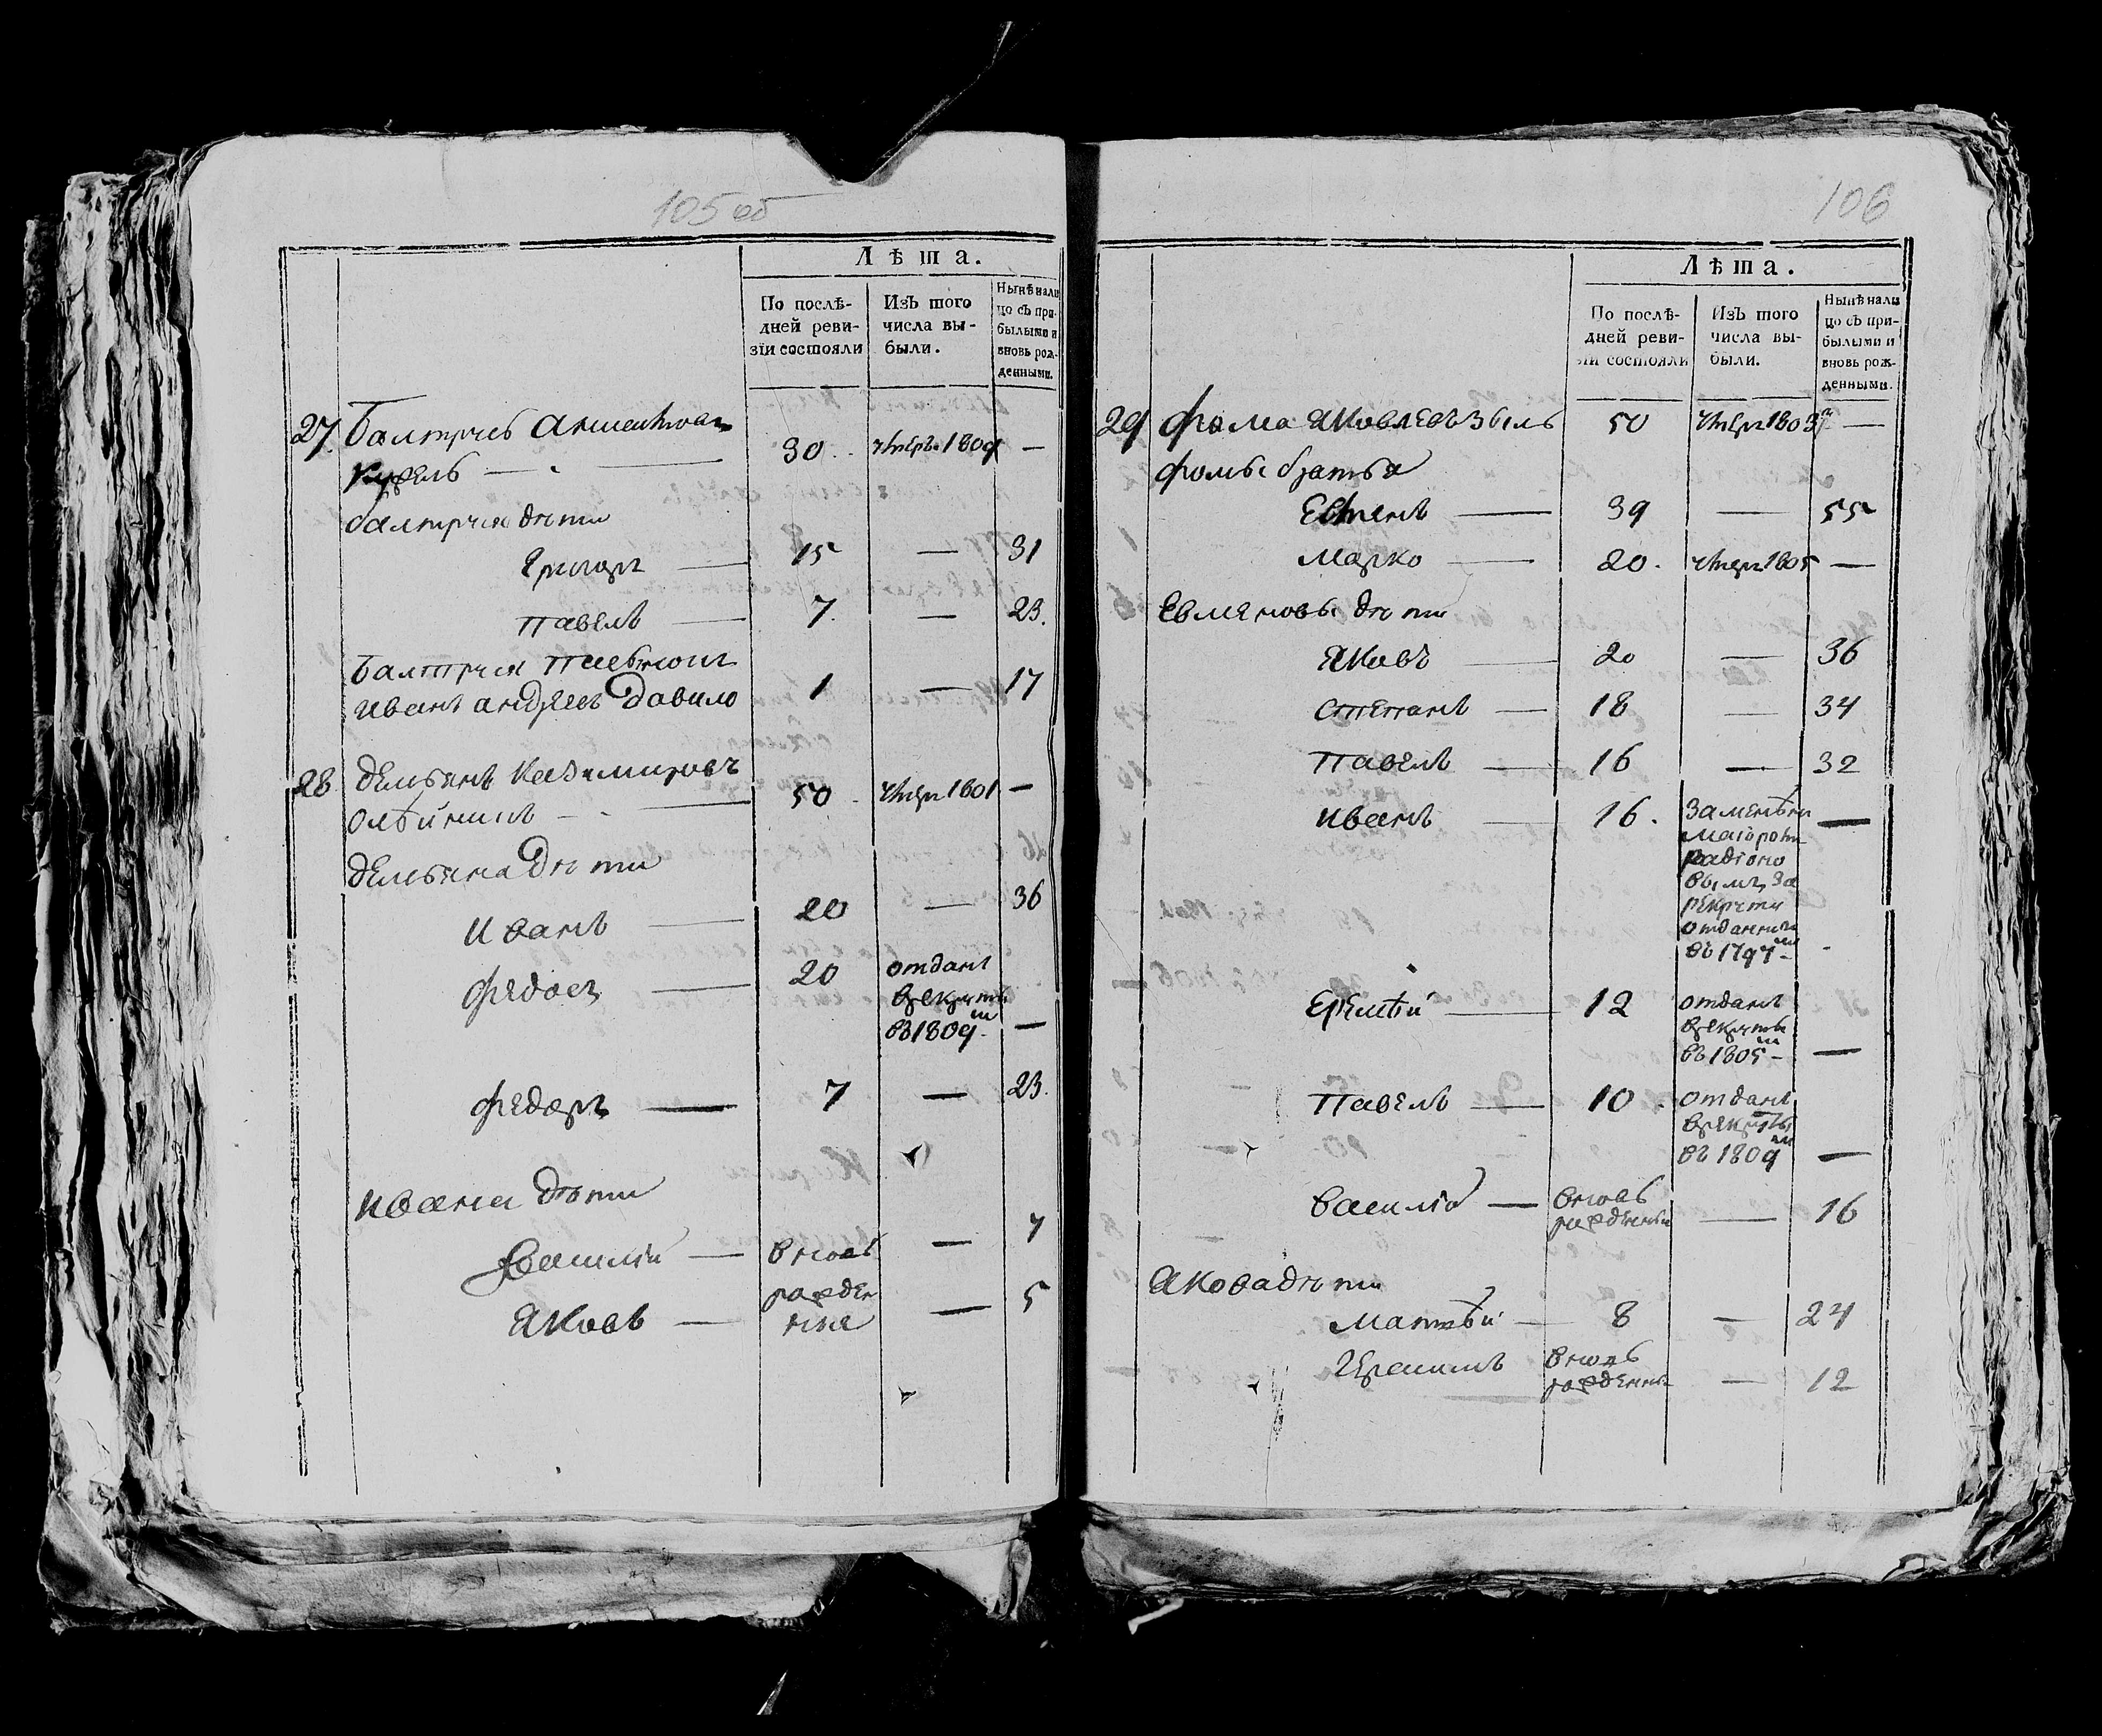 105 об
Лѣта.
По послѣ-
дней реви-
зїи состояли
Изъ того
числа вы-
были.
Нынѣ нали
цо съ при-
былыми и
вновь рож-
денными.
27. Балтрусь
30 умеръ 1809 —
Балтруся дѣти
Григоръ — 15 — 31
Павелъ — 7. — 23.
Балтруся
Иванъ андреевъ Давило 1 — 17
28 Демьянъ Казимировъ
Олѣйникъ — 50 умеръ 1801 —
Демьяна Дѣти
Иванъ — 20 — 36
Федосъ — 20 отданъ
врекруты
въ 1809 — —
Федоръ — 7 — 23.
Ивана Дѣти
Василій — вновь — 7
рожден
Яковъ — ные — 5
106
Лѣта.
По послѣ-
дней реви-
зїи состояли
Изъ того
числа вы-
были.
Нынѣ нали
цо съ при-
былыми и
вновь рож-
денными.
29 Фома Яковлевъ 50 умеръ 1803 —
Фомы братья
39 — 55
Марко — 20. умеръ 1805 —
дѣти
Яковъ — 20 — 36
Степанъ — 18 — 34
Павелъ — 16 — 32
Иванъ — 16. —
за
рекруты
въ 1797 —
Еремѣй — 12 отданъ
врекруты
въ 1805 — —
Павелъ — 10. отданъ
врекруты
въ 1809 —
Василій — вновь
рожденный — 16
Якова дѣти
Матвѣй — 8 — 24
Герасимъ вновь
рожденный — 12